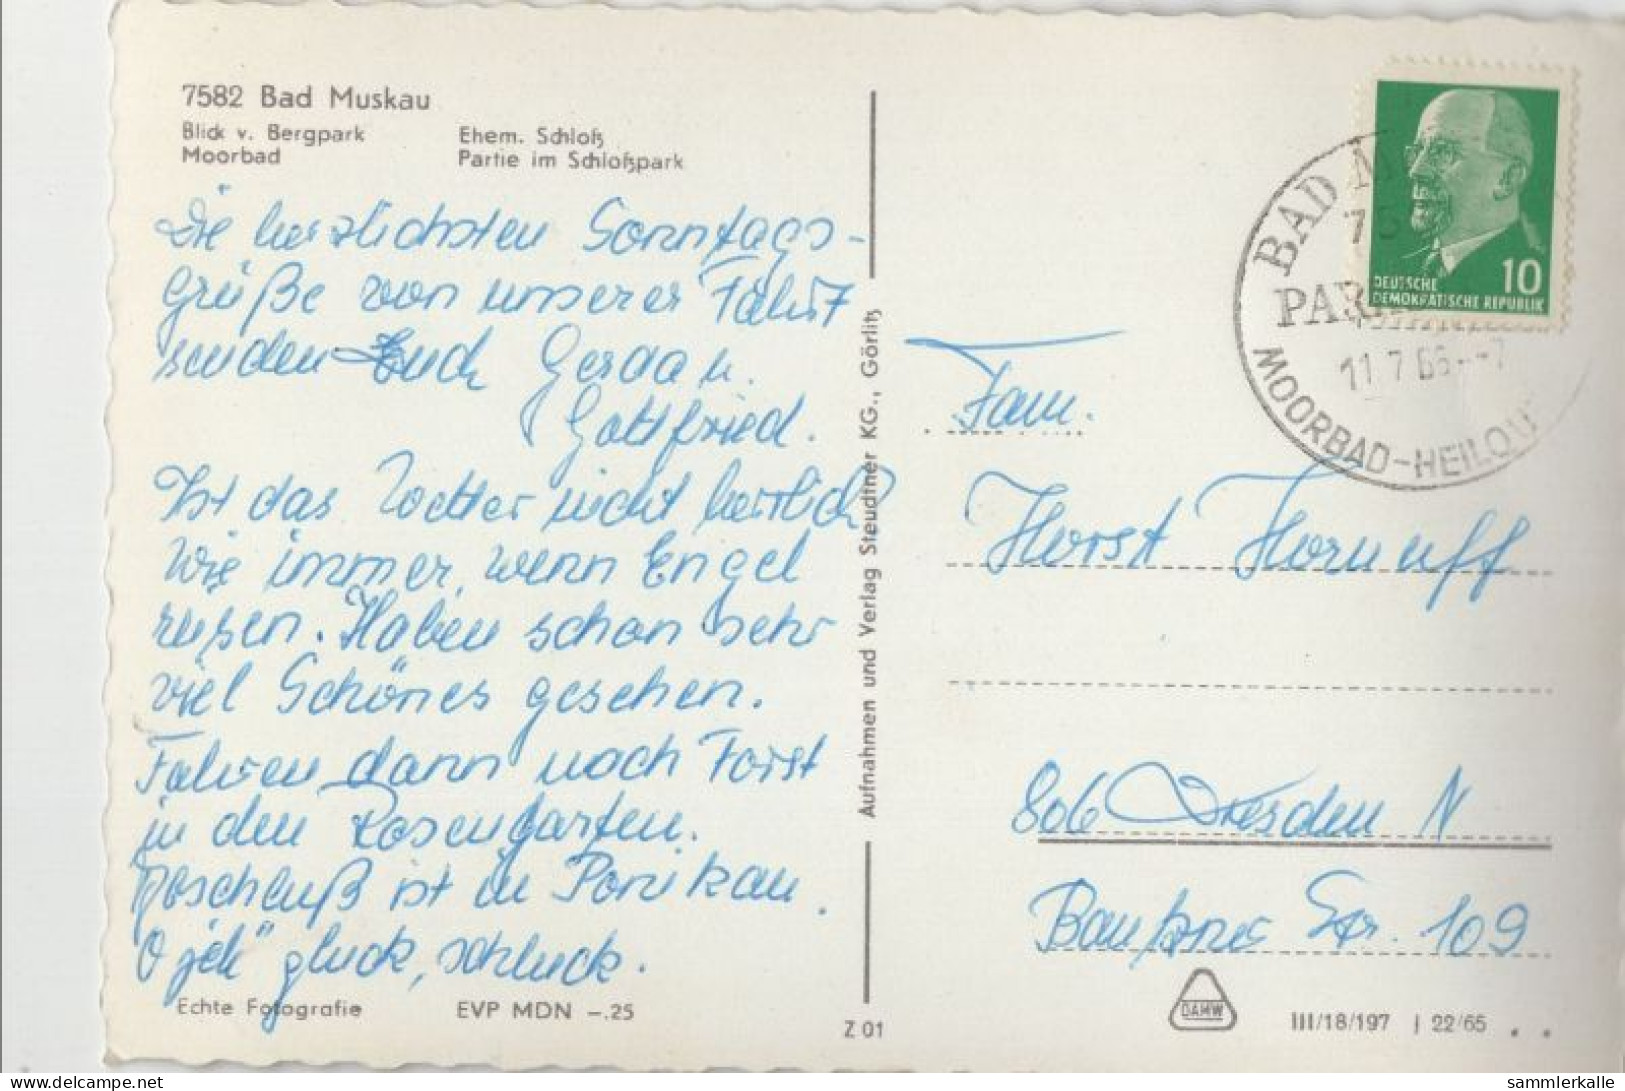 7582 Bad Muskau
Blick v. Bergpark
Moorbad
Ehem. Schloß
Partie im Schloßpark
Die herzlichsten Sonntags-
grüße von unserer Fahrt
senden Euch Gerda u.
Gottfried.
Ist das Wetter nicht herrlich?
Wie immer, wenn Engel
reisen. Haben schon sehr
viel Schönes gesehen.
Fahren dann noch Forst
in den Rosengarten.
Abschluß ist in
O jeh" gluck, schluck.
Echte Fotografie
EVP MDN –.25
Aufnahmen und Verlag Steudtner KG., Görlitz
Z 01
DEUTSCHE
DEMOKRATISCHE REPUBLIK
10
BAD M
75
PAR
11.7.66.--7
MOORBAD-HEILQU
Fam.
Horst Hornuff
806 Dresden N
Bautzner Str. 109
DAMW
III/18/197 | 22/65
sammlerkalle